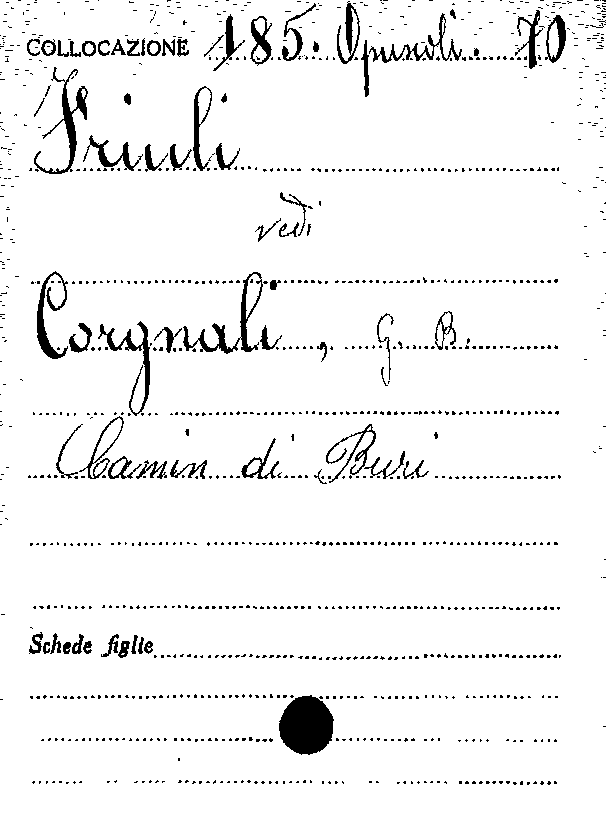 COLLOCAZIONE 185. Opuscoli. 70
Friuli
vedi
Corgnali, G. B.
Camin di Buri
Schede figlie